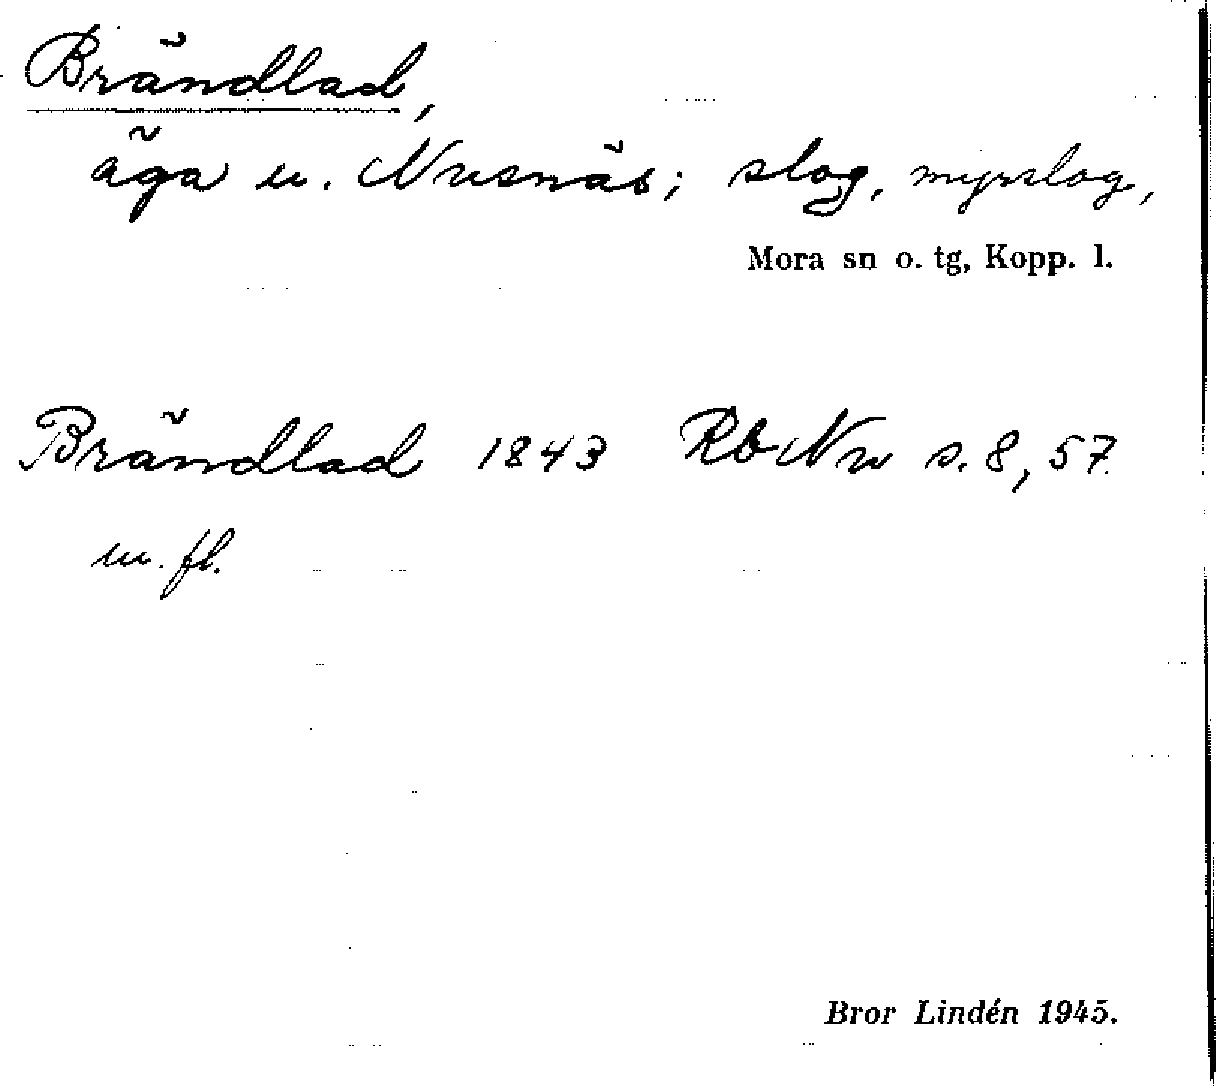 Brändlad,
äga u. Nusnäs; slog, myrslog,
Mora sn o. tg, Kopp. l.
Brändlad 1843 Rb Nu s. 8, 57
m. fl.
Bror Lindén 1945.